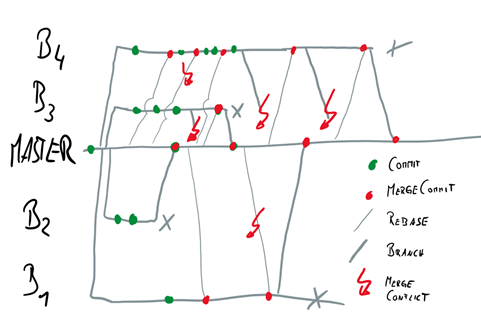 B4
B3
MASTER
B2
B1
COMMIT
MERGECOMMIT
REBASE
BRANCH
MERGE
CONFLICT